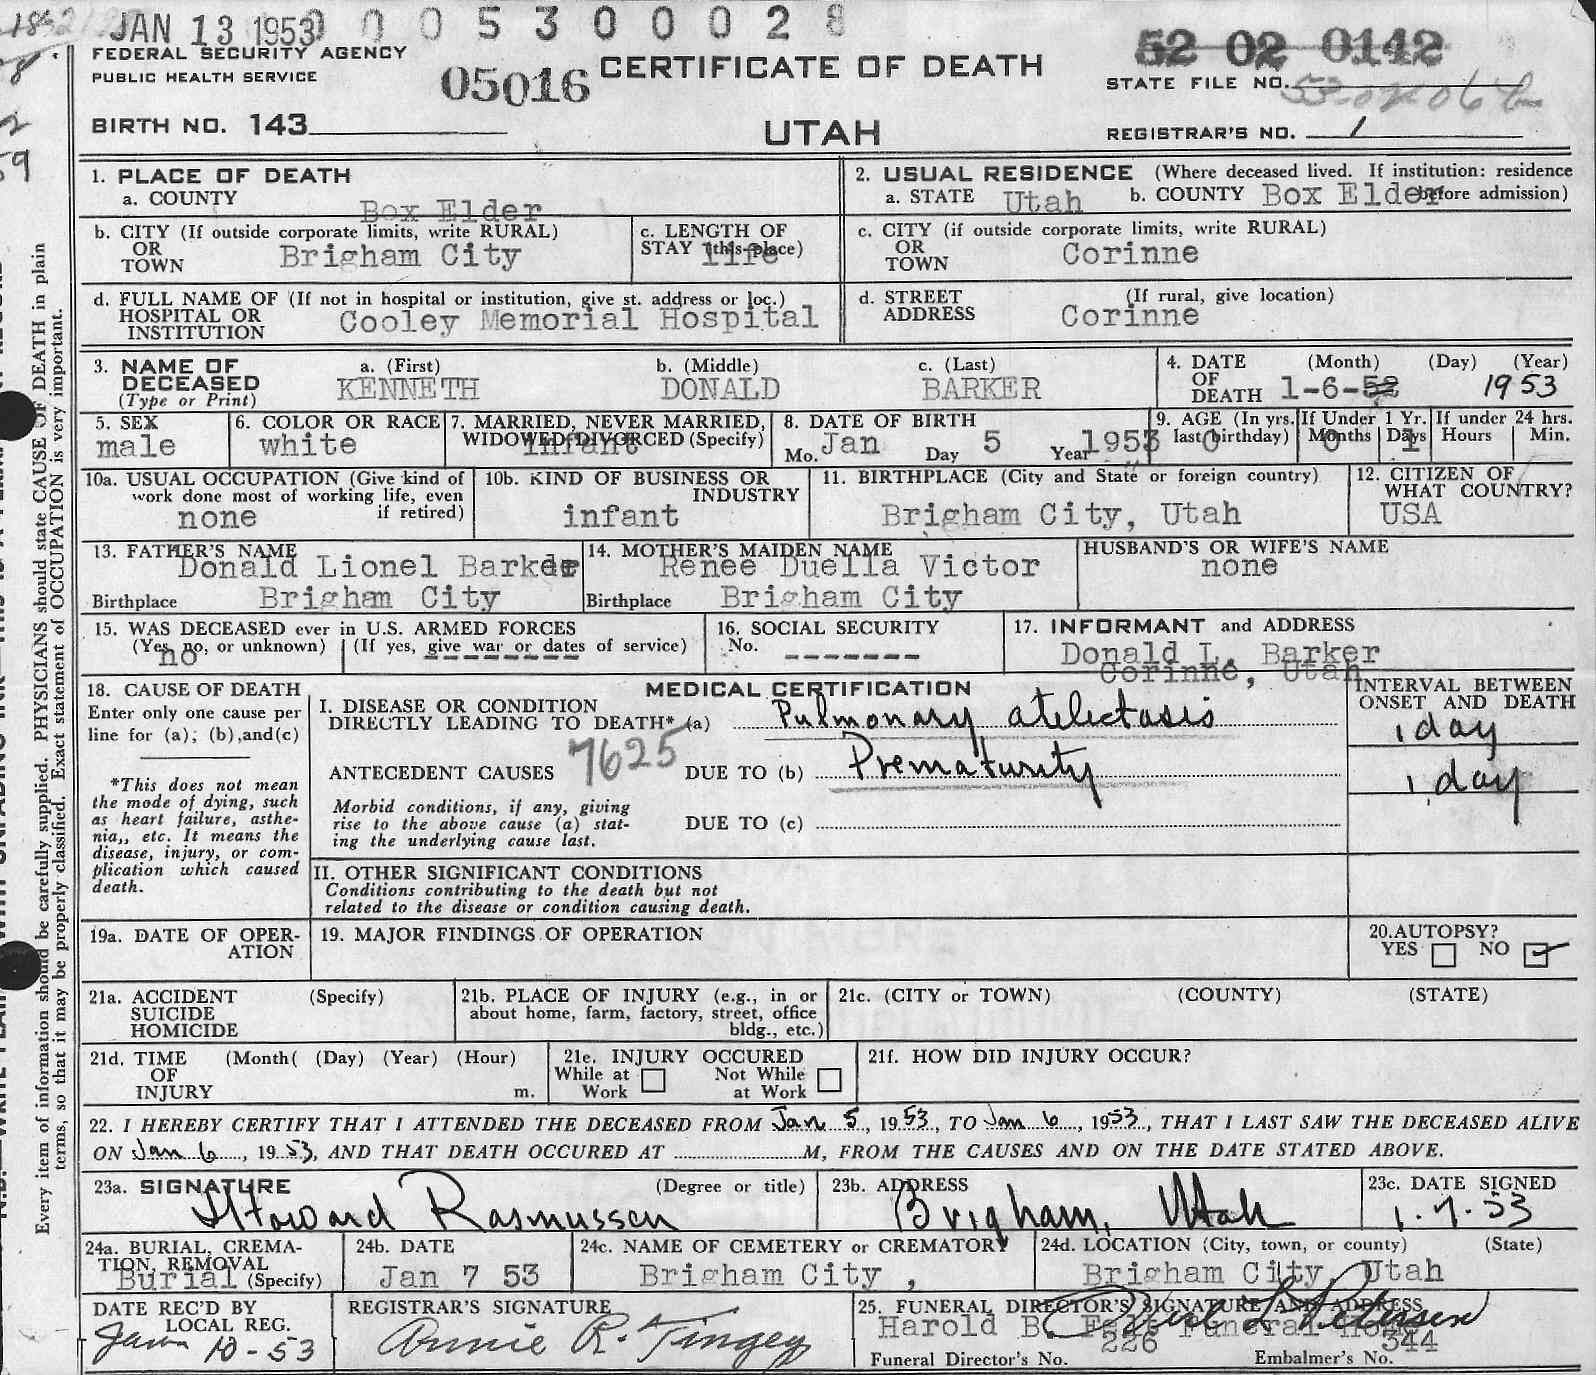 JAN 13 1953 0 0 0 5 3 0 0 0 2 8
FEDERAL SECURITY AGENCY
PUBLIC HEALTH SERVICE
05016
CERTIFICATE OF DEATH
UTAH
52 02 0142
STATE FILE NO.
BIRTH NO. 143
REGISTRAR'S NO. 1
1. PLACE OF DEATH
a. COUNTY Box Elder
2. USUAL RESIDENCE (Where deceased lived. If institution: residence before admission)
a. STATE Utah b. COUNTY Box Elder
b. CITY (If outside corporate limits, write RURAL)
OR
TOWN Brigham City
c. LENGTH OF
STAY (this place) life
c. CITY (if outside corporate limits, write RURAL)
OR
TOWN Corinne
d. FULL NAME OF (If not in hospital or institution, give st. address or loc.)
HOSPITAL OR
INSTITUTION Cooley Memorial Hospital
d. STREET (If rural, give location)
ADDRESS Corinne
3. NAME OF
DECEASED
(Type or Print)
a. (First) b. (Middle) c. (Last)
KENNETH DONALD BARKER
4. DATE (Month) (Day) (Year)
OF
DEATH 1-6-52 1953
5. SEX
male
6. COLOR OR RACE
white
7. MARRIED, NEVER MARRIED,
WIDOWED, DIVORCED (Specify)
infant
8. DATE OF BIRTH
Mo. Jan Day 5 Year 1953
9. AGE (In yrs. last birthday) 0
If Under 1 Yr.
Months 0 Days 1
If under 24 hrs.
Hours Min.
10a. USUAL OCCUPATION (Give kind of
work done most of working life, even
if retired)
none
10b. KIND OF BUSINESS OR
INDUSTRY
infant
11. BIRTHPLACE (City and State or foreign country)
Brigham City, Utah
12. CITIZEN OF
WHAT COUNTRY?
USA
13. FATHER'S NAME
Donald Lionel Barker
Birthplace Brigham City
14. MOTHER'S MAIDEN NAME
Renee Duella Victor
Birthplace Brigham City
HUSBAND'S OR WIFE'S NAME
none
15. WAS DECEASED ever in U.S. ARMED FORCES
(Yes, no, or unknown) (If yes, give war or dates of service)
no -------
16. SOCIAL SECURITY
No. -------
17. INFORMANT and ADDRESS
Donald L. Barker
Corinne, Utah
18. CAUSE OF DEATH
Enter only one cause per
line for (a); (b),and(c)
*This does not mean
the mode of dying, such
as heart failure, asthe-
nia,, etc. It means the
disease, injury, or com-
plication which caused
death.
MEDICAL CERTIFICATION
I. DISEASE OR CONDITION
DIRECTLY LEADING TO DEATH* (a) Pulmonary atelectasis
7625
ANTECEDENT CAUSES DUE TO (b) Prematurity
Morbid conditions, if any, giving
rise to the above cause (a) stat-
ing the underlying cause last.
DUE TO (c)
INTERVAL BETWEEN
ONSET AND DEATH
1 day
1 day
II. OTHER SIGNIFICANT CONDITIONS
Conditions contributing to the death but not
related to the disease or condition causing death.
19a. DATE OF OPER-
ATION
19. MAJOR FINDINGS OF OPERATION
20.AUTOPSY?
YES NO
21a. ACCIDENT (Specify)
SUICIDE
HOMICIDE
21b. PLACE OF INJURY (e.g., in or
about home, farm, factory, street, office
bldg., etc.)
21c. (CITY or TOWN) (COUNTY) (STATE)
21d. TIME (Month( (Day) (Year) (Hour)
OF
INJURY m.
21e. INJURY OCCURED
While at Work Not While at Work
21f. HOW DID INJURY OCCUR?
22. I HEREBY CERTIFY THAT I ATTENDED THE DECEASED FROM Jan 5, 1953, TO Jan 6, 1953, THAT I LAST SAW THE DECEASED ALIVE
ON Jan 6, 1953, AND THAT DEATH OCCURED AT M, FROM THE CAUSES AND ON THE DATE STATED ABOVE.
23a. SIGNATURE (Degree or title)
Howard Rasmussen
23b. ADDRESS
Brigham, Utah
23c. DATE SIGNED
1-7-53
24a. BURIAL, CREMA-
TION, REMOVAL
Burial (Specify)
24b. DATE
Jan 7 53
24c. NAME OF CEMETERY or CREMATORY
Brigham City ,
24d. LOCATION (City, town, or county) (State)
Brigham City, Utah
DATE REC'D BY
LOCAL REG.
Jan 10-53
REGISTRAR'S SIGNATURE
Annie R. Tingey
25. FUNERAL DIRECTOR'S SIGNATURE AND ADDRESS
Harold B. Felt Funeral Home
Funeral Director's No. 226 Embalmer's No. 344
Every item of information should be carefully supplied. PHYSICIANS should state CAUSE OF DEATH in plain
terms, so that it may be properly classified. Exact statement of OCCUPATION is very important.